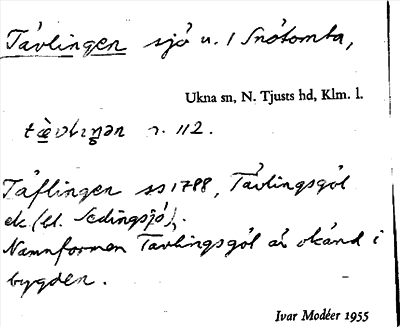 Tävlingen sjö n. l Snötomta,
Ukna sn, N. Tjusts hd, Klm. l.
tæ̀vlıŋən r. 112.
Täflingen ss 1788, Tävlingsgöl
ek (bl. Sedingsjö).
Namnformen Tävlingsgöl är okänd i
bygden.
Ivar Modéer 1955